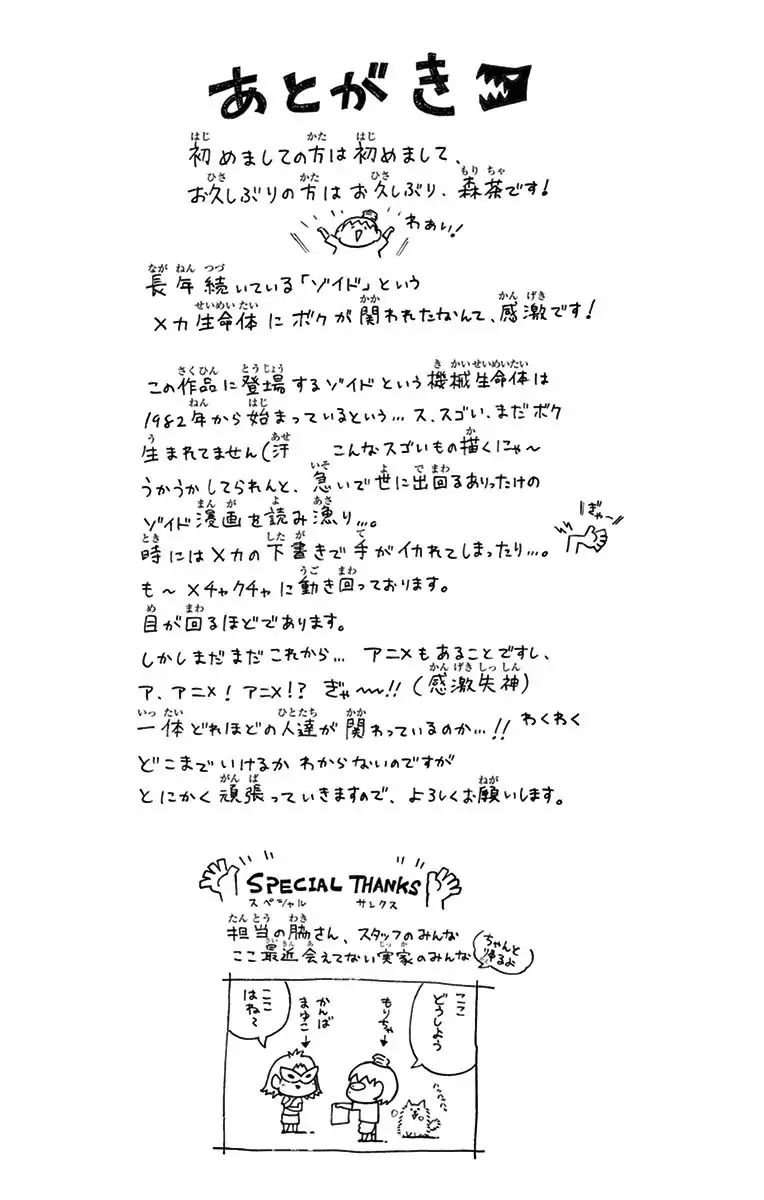 あとがき
初めましての方は初めまして、
お久しぶりの方はお久しぶり、森茶です！
わぁい！
長年続いている「ゾイド」という
メカ生命体にボクが関われたなんて、感激です！
この作品に登場するゾイドという機械生命体は
1982年から始まっているという…ス、スゴい、まだボク
生まれてません（汗　こんなスゴいもの描くにゃ〜
うかうかしてられんと、急いで世に出回るありったけの
ゾイド漫画を読み漁り…。
ぎゃー
時にはメカの下書きで手がイカれてしまったり…。
も〜メチャクチャに動き回っております。
目が回るほどであります。
しかしまだまだこれから… アニメもあることですし、
ア、アニメ！アニメ！？ ぎゃ〜〜!!（感激失神）
一体どれほどの人達が関わっているのか…!! わくわく
どこまでいけるかわからないのですが
とにかく頑張っていきますので、よろしくお願いします。
SPECIAL THANKS
スペシャル サンクス
担当の脇さん、スタッフのみんな
ここ最近会えてない実家のみんな
ちゃんと
帰るよ
ここ
どうしよう
もりちゃ→
かんば
まゆこ→
ここ
はね〜